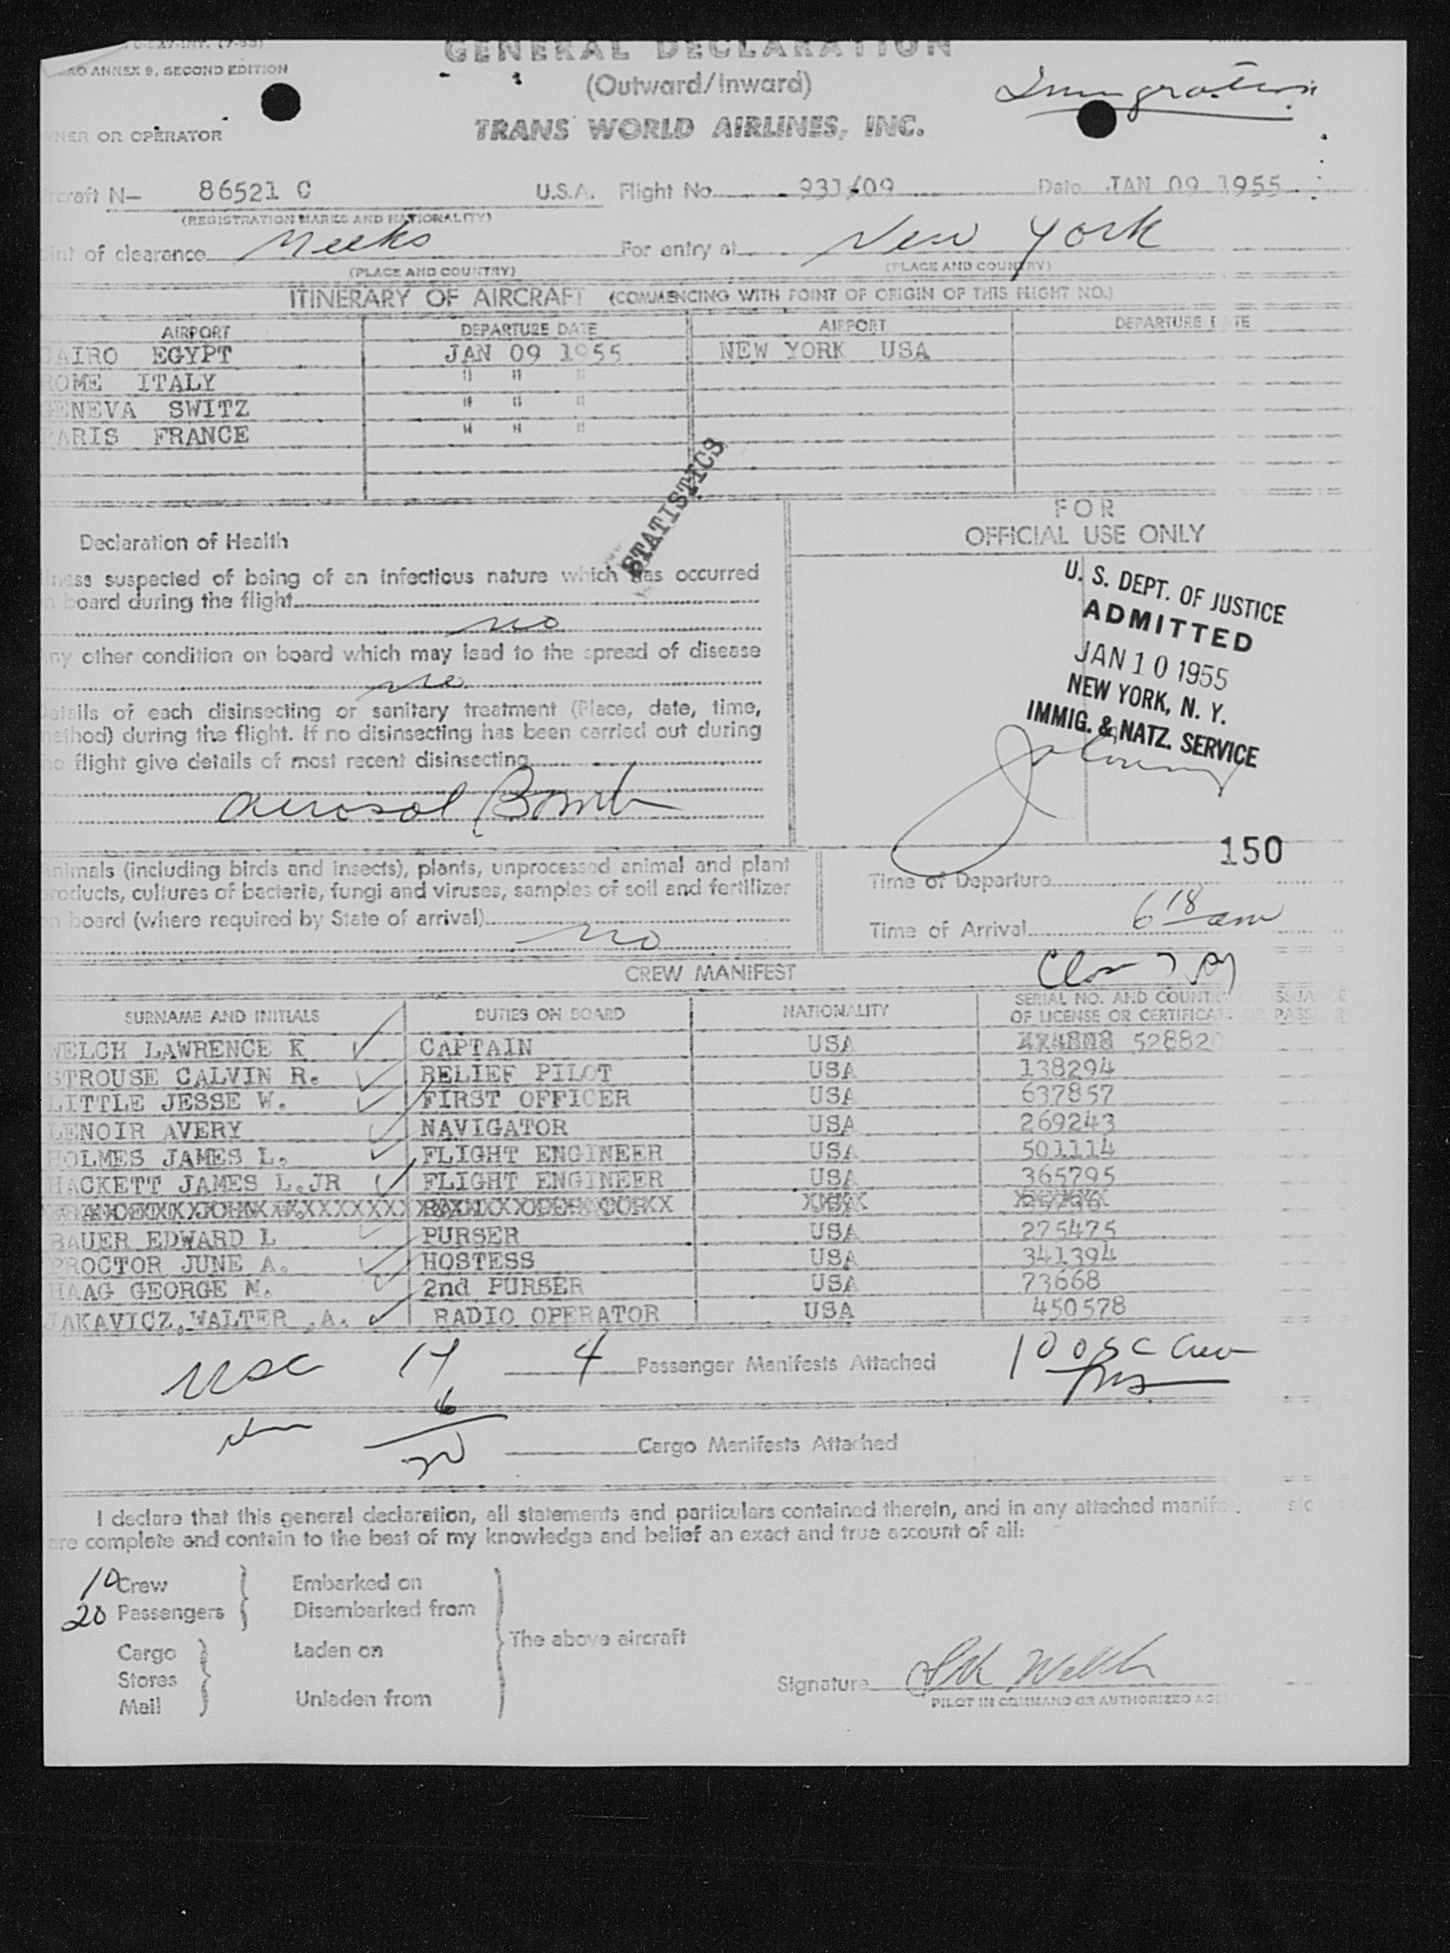 GENERAL DECLARATION
ANNEX 9, SECOND EDITION
(Outward/Inward)
Immigration
OR OPERATOR
TRANS WORLD AIRLINES, INC.
N- 86521 C U.S.A. Flight No. 931/09 Date JAN 09 1955
(REGISTRATION MARKS AND NATIONALITY)
of clearance Meeks For entry at New York
(PLACE AND COUNTRY) (PLACE AND COUNTRY)
ITINERARY OF AIRCRAFT (COMMENCING WITH POINT OF ORIGIN OF THIS FLIGHT NO.)
AIRPORT DEPARTURE DATE AIRPORT DEPARTURE DATE
CAIRO EGYPT JAN 09 1955 NEW YORK USA
ROME ITALY " " "
GENEVA SWITZ " " "
PARIS FRANCE " " "
STATISTICS
FOR
OFFICIAL USE ONLY
Declaration of Health
suspected of being of an infectious nature which has occurred
board during the flight
no
any other condition on board which may lead to the spread of disease
no
Details of each disinsecting or sanitary treatment (Place, date, time,
method) during the flight. If no disinsecting has been carried out during
flight give details of most recent disinsecting
aerosol Bomb
U. S. DEPT. OF JUSTICE
ADMITTED
JAN 10 1955
NEW YORK, N. Y.
IMMIG. & NATZ. SERVICE
150
Animals (including birds and insects), plants, unprocessed animal and plant
products, cultures of bacteria, fungi and viruses, samples of soil and fertilizer
board (where required by State of arrival)
no
Time of Departure
Time of Arrival 6 18 am
CREW MANIFEST
SURNAME AND INITIALS DUTIES ON BOARD NATIONALITY SERIAL NO. AND COUNTRY
OF LICENSE OR CERTIFICATE
WELCH LAWRENCE K CAPTAIN USA 52882
STROUSE CALVIN R. RELIEF PILOT USA 138294
LITTLE JESSE W. FIRST OFFICER USA 637857
LENOIR AVERY NAVIGATOR USA 269243
HOLMES JAMES L. FLIGHT ENGINEER USA 501114
HACKETT JAMES L.JR FLIGHT ENGINEER USA 365795
BAUER EDWARD L PURSER USA 275475
PROCTOR JUNE A. HOSTESS USA 341394
HAAG GEORGE M. 2nd PURSER USA 73668
JAKAVICZ,WALTER ,A. RADIO OPERATOR USA 450578
USC 14 4 Passenger Manifests Attached 10 USC Crew
6
20 Cargo Manifests Attached
I declare that this general declaration, all statements and particulars contained therein, and in any attached
are complete and contain to the best of my knowledge and belief an exact and true account of all:
10 Crew Embarked on
20 Passengers Disembarked from
The above aircraft
Cargo Laden on
Stores
Mail Unladen from
Signature L K Welch
PILOT IN COMMAND OR AUTHORIZED